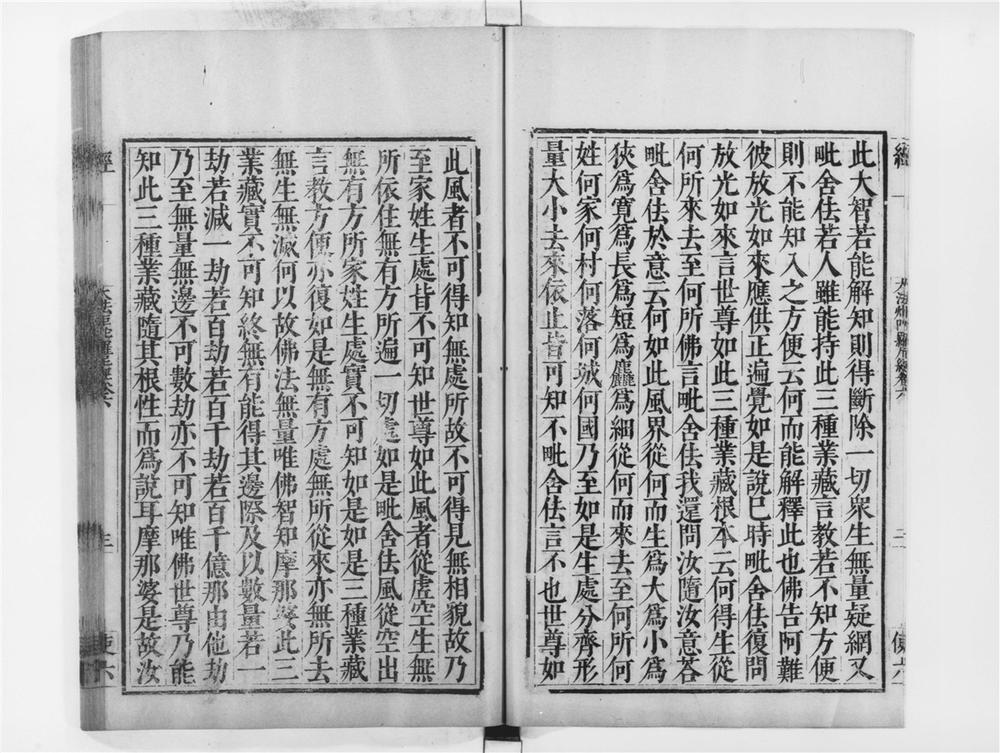 此大智若能解知則得斷除一切衆生無量疑網又
毗舍佉若人雖能持此三種業藏言教若不知方便
則不能知入之方便云何而能解釋此也佛告阿難
彼放光如來應供正遍覺如是說已時毗舍佉復問
放光如來言世尊如此三種業藏根本云何得生從
何所來去至何所佛言毗舍佉我還問汝隨汝意荅
毗舍佉於意云何如此風界從何而生爲大爲小爲
狹爲寬爲長爲短爲麤爲細從何而來去至何所何
姓何家何村何落何城何國乃至如是生處分齊形
量大小去來依止皆可知不毗舍佉言不也世尊如
此風者不可得知無處所故不可得見無相貌故乃
至家姓生處皆不可知世尊如此風者從虛空生無
所依住無有方所遍一切處如是毗舍佉風從空出
無有方所家姓生處實不可知如是如是三種業藏
言教方便亦復如是無有方處無所從來亦無所去
無生無滅何以故佛法無量唯佛智知摩那婆此三
業藏實不可知終無有能得其邊際及以數量若一
劫若減一劫若百劫若百千劫若百千億那由他劫
乃至無量無邊不可數劫亦不可知唯佛世尊乃能
知此三種業藏隨其根性而爲說耳摩那婆是故汝